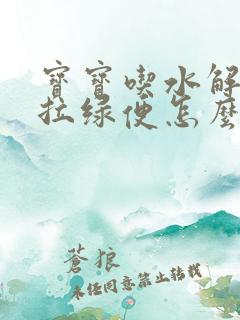 寶寶喫水解
拉綠便怎麼
蒼狼
未經同意禁止轉載